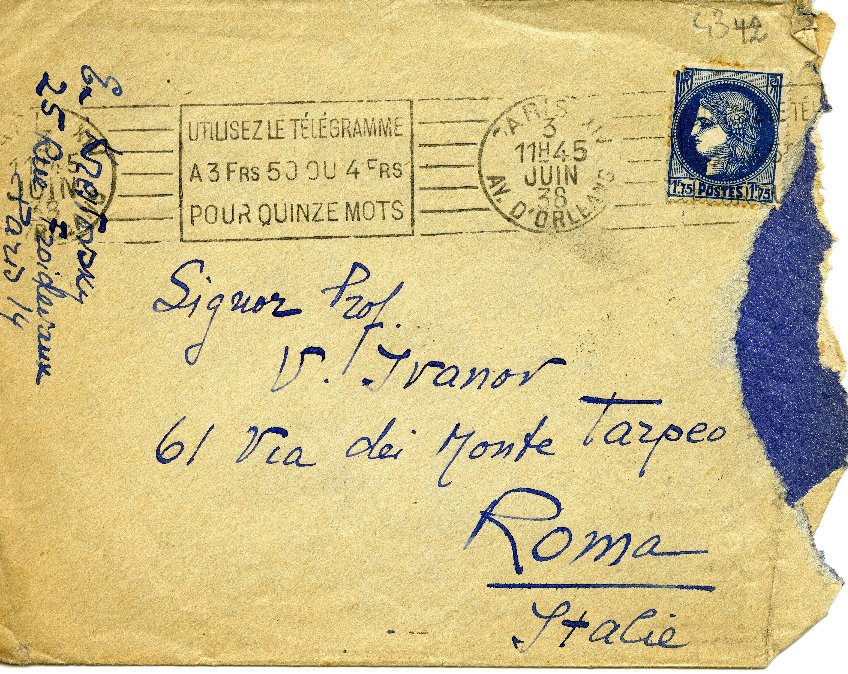 2342
UTILISEZ LE TÉLÉGRAMME
A 3 FRS 50 OU 4 FRS
POUR QUINZE MOTS
PARIS XIV
3
11H45
JUIN
38
AV. D'ORLEANS
1F75 POSTES 1F75
25 Rue Froidevaux
Paris 14
Signor Prof.
V. Ivanov
61 Via dei Monte Tarpeo
Roma
Italie